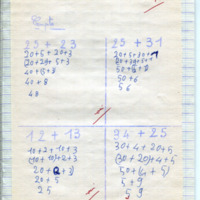 23 + 23
20+5+20+3
(20+20)+5+3
40+5+3
40+8
48
25 + 31
20+5+30+1
50+6
56
12 + 13
10+2+10+3
(10+10)+2+3
20+5
25
34 + 25
30+4+20+5
(30+20)+4+5
50+(4+5)
5+9
59